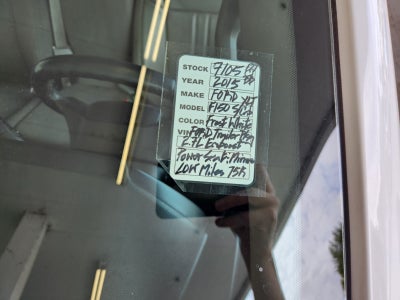 STOCK 7105
YEAR 2015
MAKE FORD XLT
MODEL F150 S/Crew
COLOR Frost White
VIN FORD Trailer Pkg
2.7L Ecoboost
Power Seat: Mirrors
LOW Miles 75K